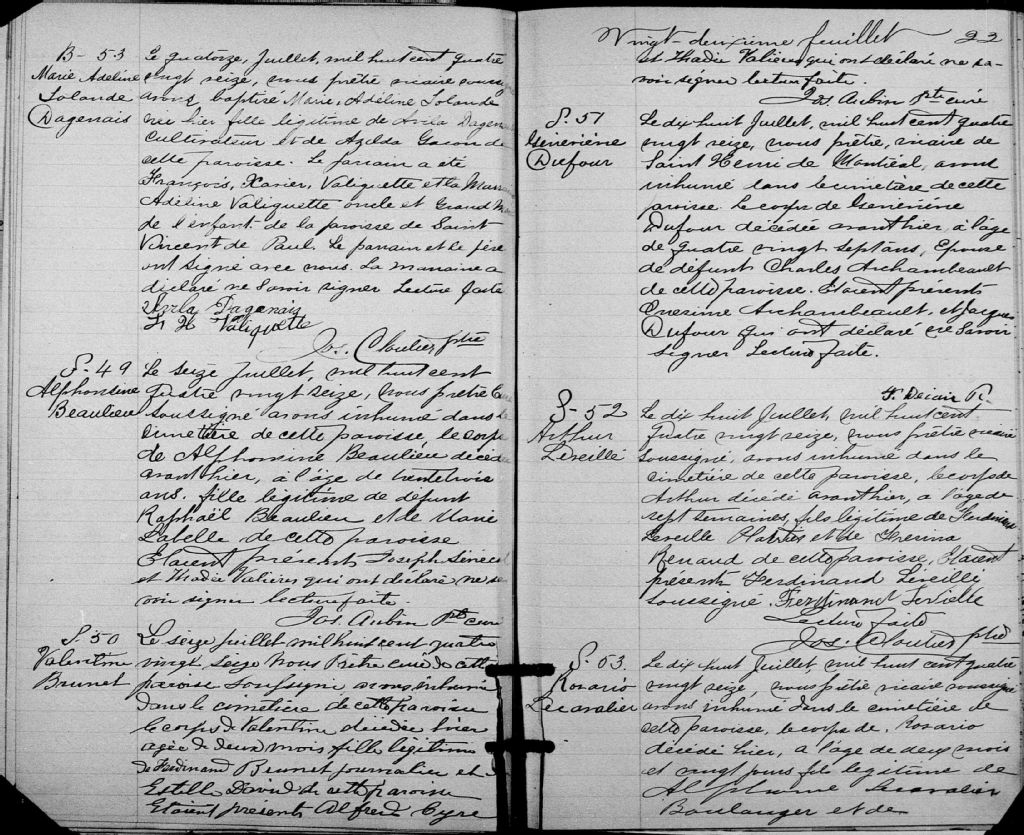 B-53
Marie Adeline
Iolande
Dagenais
Le quatorze, Juillet, mil huit cent quatre
vingt seize, nous prêtre vicaire sous
avons baptisé Marie, Adéline Iolande
née hier fille légitime de Avila Dagenais
Cultivateur et de Azilda Gascon de
cette paroisse. Le parrain a été
François, Xavier, Valiquette et la Marraine
Adéline Valiquette oncle et Grand
de l'enfant de la paroisse de Saint
Vincent de Paul. Le parrain et le père
ont signé avec nous. La marraine a
déclaré ne savoir signer Lecture faite
Avila Dagenais
F X Valiquette
Jos. Cloutier ptre
S-49
Alphonsine
Beaulieu
Le seize Juillet, mil huit cent
quatre vingt seize, nous prêtre Curé
soussigné avons inhumé dans le
cimetière de cette paroisse, le corps
de Alphonsine Beaulieu décédée
avant hier, à l'âge de trente trois
ans. fille légitime de défunt
Raphaël Beaulieu et de Marie
Labelle de cette paroisse
Etaient présents Joseph Sénécal
et Thadée Valières qui ont déclaré ne sa
voir signer lecture faite.
Jos. Aubin Ptre curé
S-50
Valentine
Brunet
Le seize juillet mil huit cent quatre
vingt seize nous Prêtre curé de cette
paroisse soussigné avons inhumé
dans le cimetière de cette paroisse
le corps de Valentine décédée hier
agée de deux mois fille légitime
de Ferdinand Brunet journalier et de
Estelle David de cette paroisse
Etaient présents Alfred Cyre
Vingt deuxième feuillet 22
et Thadée Valières qui ont déclaré ne sa-
voir signer lecture faite.
Jos. Aubin Ptre curé
S-51
Geneviève
Dufour
Le dix huit Juillet, mil huit cent quatre
vingt seize, nous prêtre, vicaire de
Saint Henri de Montréal, avons
inhumé dans le cimetière de cette
paroisse le corps de Geneviève
Dufour décédée avant hier, à l'âge
de quatre vingt sept ans, Epouse
de défunt Charles Archambeault
de cette paroisse. Etaient présents
Onésime Archambeault, et Jacques
Dufour qui ont déclaré ne savoir
signer Lecture faite.
S-52
Arthur
Léveillé
Le dix huit Juillet, mil huit cent
quatre vingt seize, nous prêtre vicaire
soussigné, avons inhumé dans le
cimetière de cette paroisse, le corps de
Arthur décédé avant hier, à l'âge de
sept semaines, fils légitime de Ferdinand
Léveillé et de
Renaud de cette paroisse, Etaient
présents Ferdinand Léveillé
soussigné. Ferdinand Leveille
Lecture faite
Jos. Cloutier ptre
S-53.
Rosario
Lecavalier
Le dix huit Juillet, mil huit cent quatre
vingt seize, nous prêtre vicaire soussigné
avons inhumé dans le cimetière de
cette paroisse, le corps de, Rosario
décédé hier, à l'âge de deux mois
et vingt jours fils légitime de
Alphonse Lecavalier
Boulanger et de